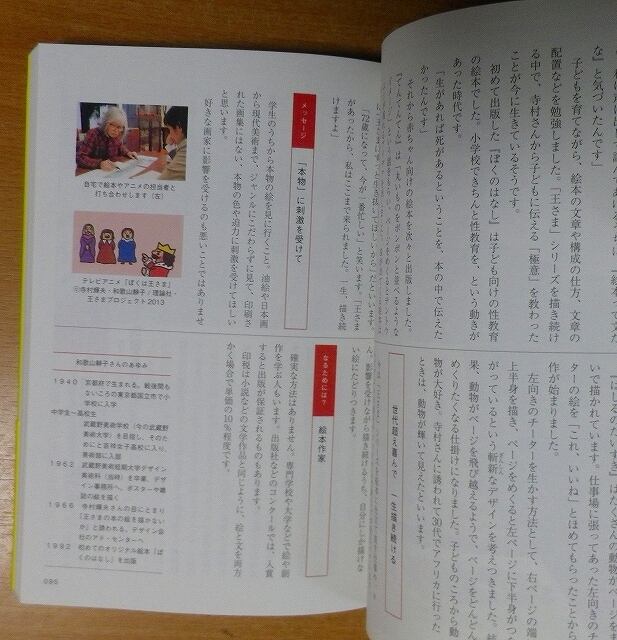 な」と気づいたんです」
子どもを育てながら、絵本の文章や構成の仕方、文章の
配置などを勉強しました。「王さま」シリーズを描き続け
る中で、寺村さんから子どもに伝える「極意」を教わった
ことが今に生きているそうです。
初めて出版した『ぼくのはなし』は子ども向けの性教育
の絵本でした。小学校できちんと性教育を、という動きが
あった時代です。
「生があれば死があるということを、本の中で伝えた
かったんです」
それから赤ちゃん向けの絵本を次々と出版しました。
「72歳になって、今が一番忙しい」と笑います。「王さま
があったから、私はここまで来られました。一生、描き続
けますよ」
メッセージ
「本物」に刺激を受けて
学生のうちから本物の絵を見に行くこと。油絵や日本画
から現代美術まで、ジャンルにこだわらずに見て、印刷さ
れた画集にはない、本物の色や迫力に刺激を受けてほしい
と思います。
好きな画家に影響を受けるのも悪いことではありませ
自宅で絵本やアニメの担当者と
打ち合わせします（左）
テレビアニメ「ぼくは王さま」
©寺村輝夫・和歌山静子／理論社・
王さまプロジェクト2013
いで描かれています。仕事場に張ってあった左向きの
ターの絵を「これ、いいね」とほめてもらったことか
作が始まりました。
左向きのチータを生かす方法として、右ページの端
上半身を描き、ページをめくると左ページに下半身がつ
がっているという斬新なデザインを考えつきました。
果、動物がページを飛び越えるようで、ページをどんどん
めくりたくなる仕掛けになりました。子どものころから動
物が大好き、寺村さんに誘われて30代でアフリカに行った
ときは、動物が輝いて見えたといいます。
世代超え喜んで 一生描き続ける
ん。影響を受けながら描き続けるうち、自分にしか描けな
い絵にたどりつきます。
なるためには？
絵本作家
確実な方法はありません。専門学校や大学などで絵や創
作を学ぶ人もいます。出版社などのコンクールでは、入賞
すると出版が保証されるものもあります。
印税は小説などの文学作品と同じように、絵と文を両方
かく場合で単価の10％程度です。
和歌山静子さんのあゆみ
1940 京都府で生まれる。戦後間も
ないころの東京都国立市で小
学校に入学
中学生～高校生
武蔵野美術学校（今の武蔵野
美術大学）を目指し、そのた
めにと吉祥女子高校に入り、
美術部に入部
1962 武蔵野美術短期大学デザイン
美術科（当時）を卒業、デザ
イン事務所へ。ポスターや雑
誌の絵を描く
1966 寺村輝夫さんの目にとまり
「王さまの本の絵を描かない
か」と誘われる。デザイン会
社のアド・センターへ
1982 初めてのオリジナル絵本『ぼ
くのはなし』を出版
095